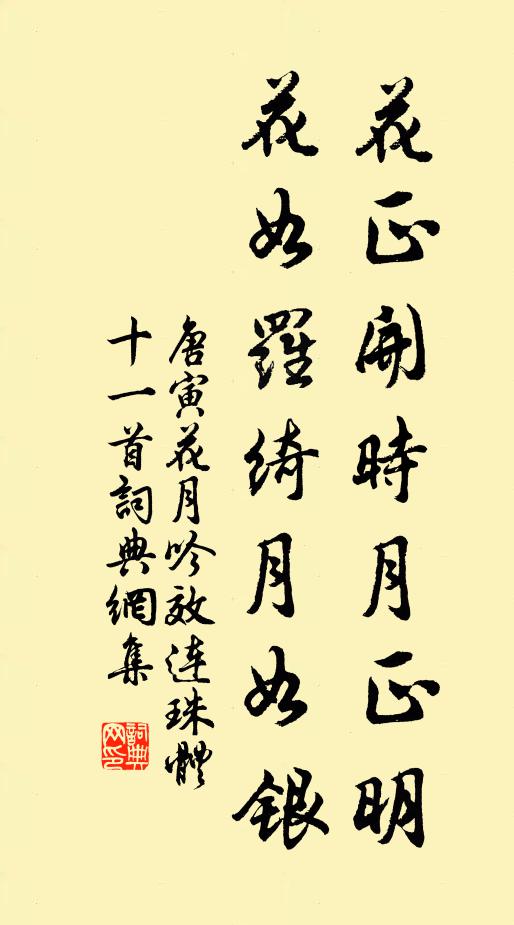 花正開時月正明
花如羅綺月如銀
唐寅花月吟效連珠體
十一首詞典網集
詞典
网印